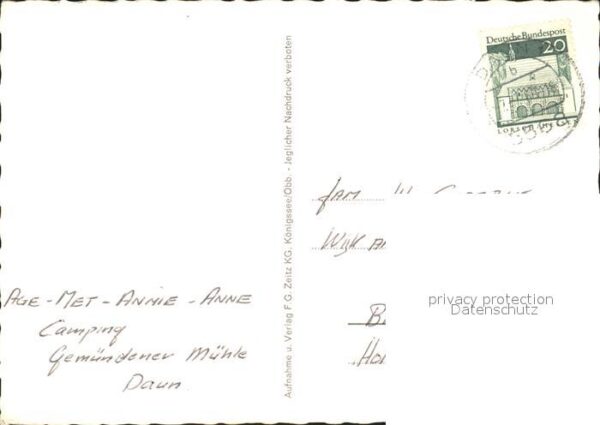 Deutsche Bundespost
20
DAUN
5568
AGE - MET - ANNIE - ANNE
Camping
Gemündener Mühle
Daun
Aufnahme u. Verlag F G. Zeitz KG. Königssee/Obb. - Jeglicher Nachdruck verboten
FAM
Wijk
privacy protection
Datenschutz